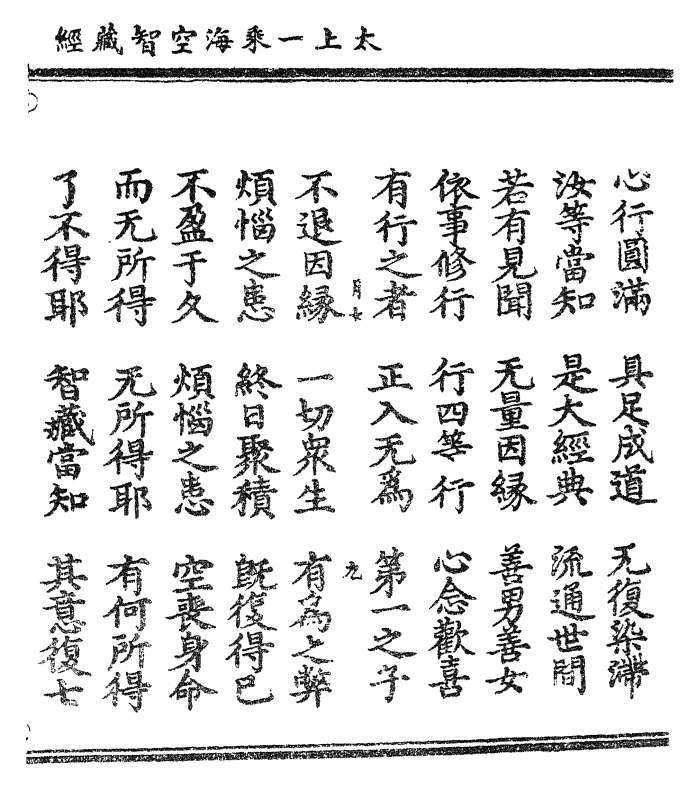 太上一乘海空智藏經
心行圓滿 具足成道 无復染滯
汝等當知 是大經典 流通世間
若有見聞 无量因縁 善男善女
依事修行 行四等行 心念歡喜
有行之者 正入无爲 第一之子
月七 九
不退因縁 一切衆生 有爲之弊
煩惱之患 終日聚積 旣復得已
不盈于久 煩惱之患 空喪身命
而无所得 无所得耶 有何所得
了不得耶 智藏當知 其意復七